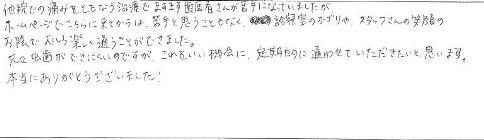 他院での痛みをともなう治療でますます歯医者さんが苦手になっていましたが
ホームページでこちらに来てからは、苦手と思うこともなく、診察室のかざりや、スタッフさんの笑顔の
お陰で むしろ楽しく通うことができました。
元々虫歯ができにくいのですが、これをいい機会に、定期的に通わせていただきたいと思います。
本当にありがとうございました!